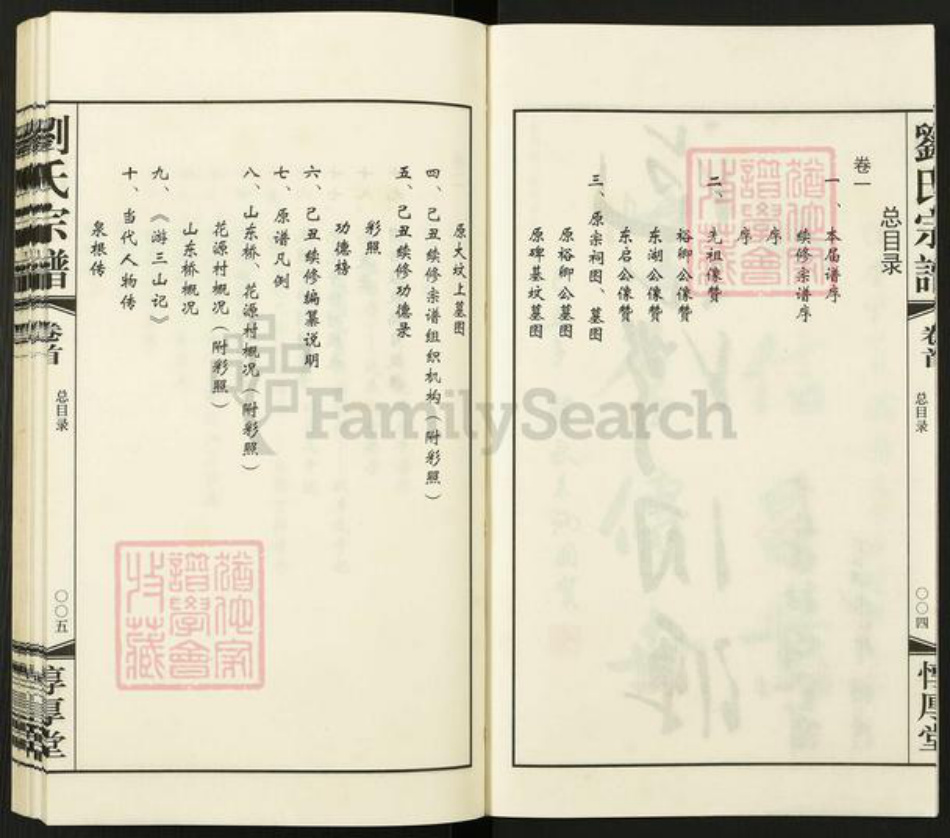 劉氏宗譜
卷首
总目录
〇〇四
惇厚堂
总目录
卷一
一、本届谱序
续修宗谱序
序
序
二、先祖像赞
裕卿公像赞
东湖公像赞
东启公像赞
三、原宗祠图、墓图
原裕卿公墓图
原碑墓坟墓图
原大坟上墓图
四、己丑续修宗谱组织机构（附彩照）
五、己丑续修功德录
彩照
功德榜
六、己丑续修编纂说明
七、原谱凡例
八、山东桥、花源村概况（附彩照）
花源村概况（附彩照）
山东桥概况
九、《游三山记》
十、当代人物传
泉根传
劉氏宗譜
卷首
总目录
〇〇五
惇厚堂
猶他家譜學會收藏
猶他家譜學會收藏
FamilySearch